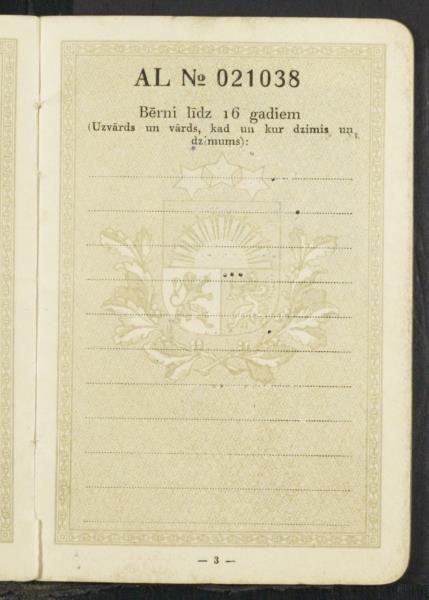 AL № 021038
Bērni līdz 16 gadiem
(Uzvārds un vārds, kad un kur dzimis un
dzimums):
— 3 —